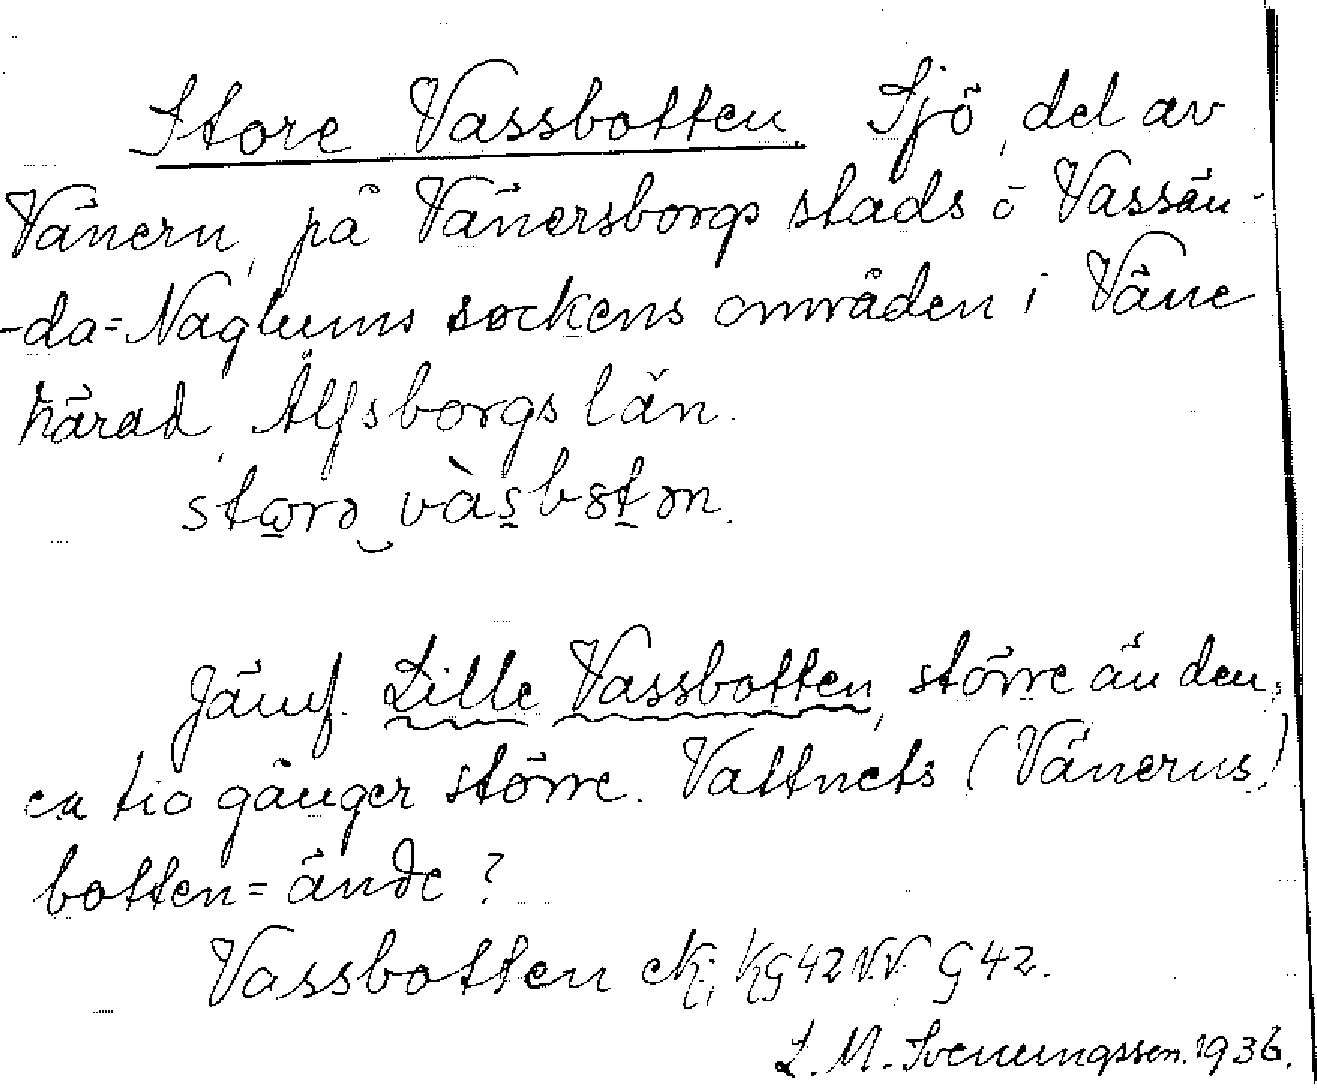 Store Vassbotten Sjö, del av
Vänern, på Vänersborgs stads o Vassän-
-da=Naglums sockens områden i Väne
härad, Älfsborgs län.
Jämf. Lille Vassbotten, större än den,
ca tio gånger större. Vattnets (Vänerns)
botten=ände?
Vassbotten ek, KG42NV G42.
L. M. Svenungsson. 1936.